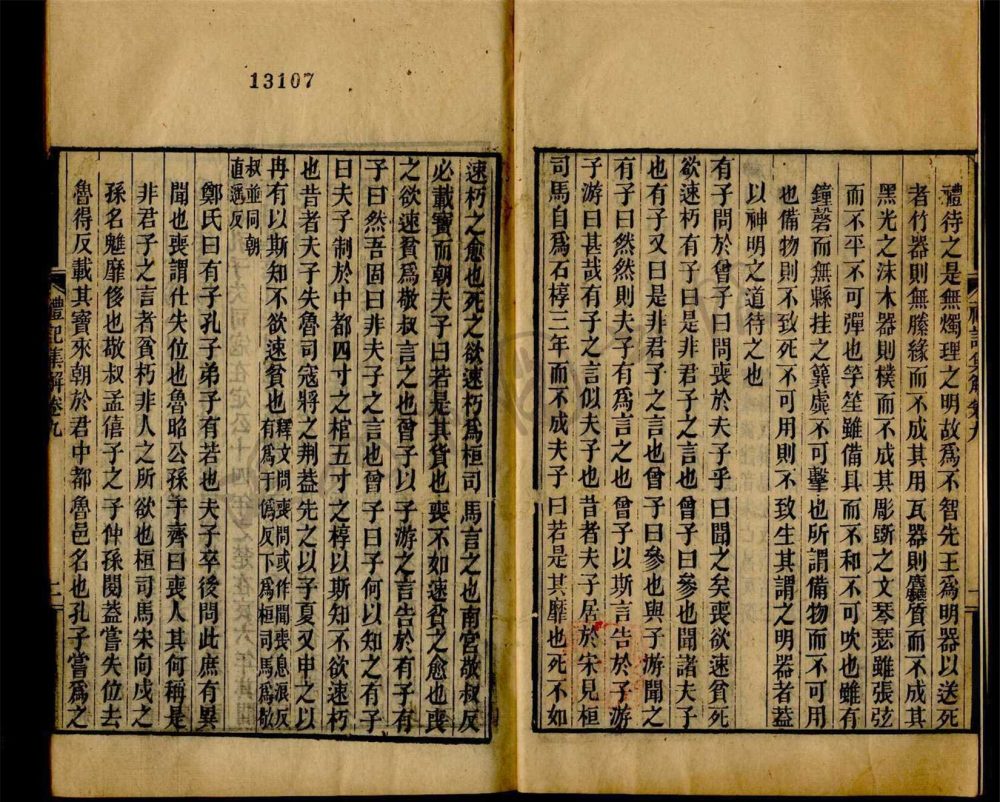 禮待之是無燭理之明故爲不智先王爲明器以送死
者竹器則無縢緣而不成其用瓦器則麤質而不成其
黑光之沬木器則樸而不成其彫斲之文琴瑟雖張弦
而不平不可彈也竽笙雖備具而不和不可吹也雖有
鐘磬而無縣挂之簨虡不可擊也所謂備物而不可用
也備物則不致死不可用則不致生其謂之明器者蓋
以神明之道待之也
有子問於曾子曰問喪於夫子乎曰聞之矣喪欲速貧死
欲速朽有子曰是非君子之言也曾子曰參也聞諸夫子
也有子又曰是非君子之言也曾子曰參也與子游聞之
有子曰然然則夫子有爲言之也曾子以斯言告於子游
子游曰甚哉有子之言似夫子也昔者夫子居於宋見桓
司馬自爲石椁三年而不成夫子曰若是其靡也死不如
速朽之愈也死之欲速朽爲桓司馬言之也南宮敬叔反
必載寶而朝夫子曰若是其貨也喪不如速貧之愈也喪
之欲速貧爲敬叔言之也曾子以子游之言告於有子有
子曰然吾固曰非夫子之言也曾子曰子何以知之有子
曰夫子制於中都四寸之棺五寸之椁以斯知不欲速朽
也昔者夫子失魯司寇將之荆蓋先之以子夏又申之以
冉有以斯知不欲速貧也釋文問喪問或作聞喪息浪反
有爲于僞反下爲桓司馬爲敬
叔並同朝
直遥反
鄭氏曰有子孔子弟子有若也夫子卒後問此庶有異
聞也喪謂仕失位也魯昭公孫于齊曰喪人其何稱是
非君子之言者貧朽非人之所欲也桓司馬宋向戌之
孫名魋靡侈也敬叔孟僖子之子仲孫閱蓋嘗失位去
魯得反載其寶來朝於君中都魯邑名也孔子嘗爲之
禮記集解卷九
二
禮記集解卷九
13107